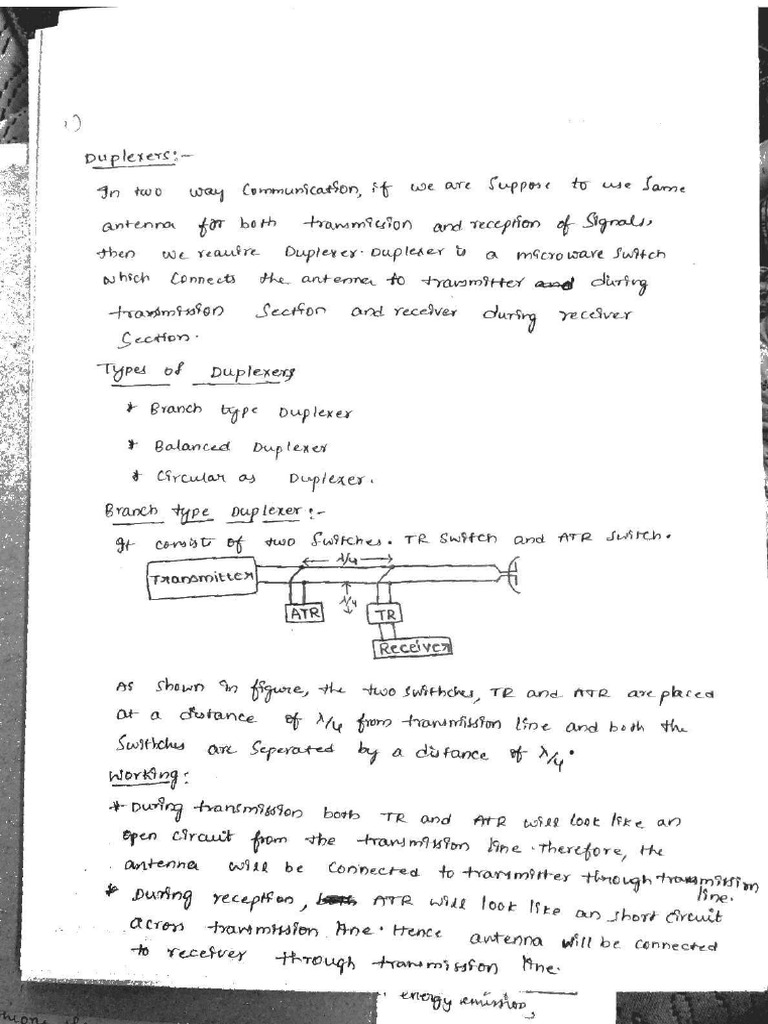 1)
Duplexers:-
In two way communication, if we are suppose to use same
antenna for both transmission and reception of signals,
then we require Duplexer. Duplexer is a microwave switch
which connects the antenna to transmitter during
transmission section and receiver during receiver
section.
Types of Duplexers
* Branch type Duplexer
* Balanced Duplexer
* Circular as Duplexer.
Branch type Duplexer:-
It consists of two switches. TR switch and ATR switch.
λ/4
Transmitter
λ/4
ATR
TR
Receiver
As shown in figure, the two swithches, TR and ATR are placed
at a distance of λ/4 from transmission line and both the
swithches are seperated by a distance of λ/4.
Working:
* During transmission both TR and ATR will look like an
open circuit from the transmission line. Therefore, the
antenna will be connected to transmitter through transmission
line.
* During reception, ATR will look like an short circuit
across transmission line. Hence antenna will be connected
to receiver through transmission line.
energy emission,